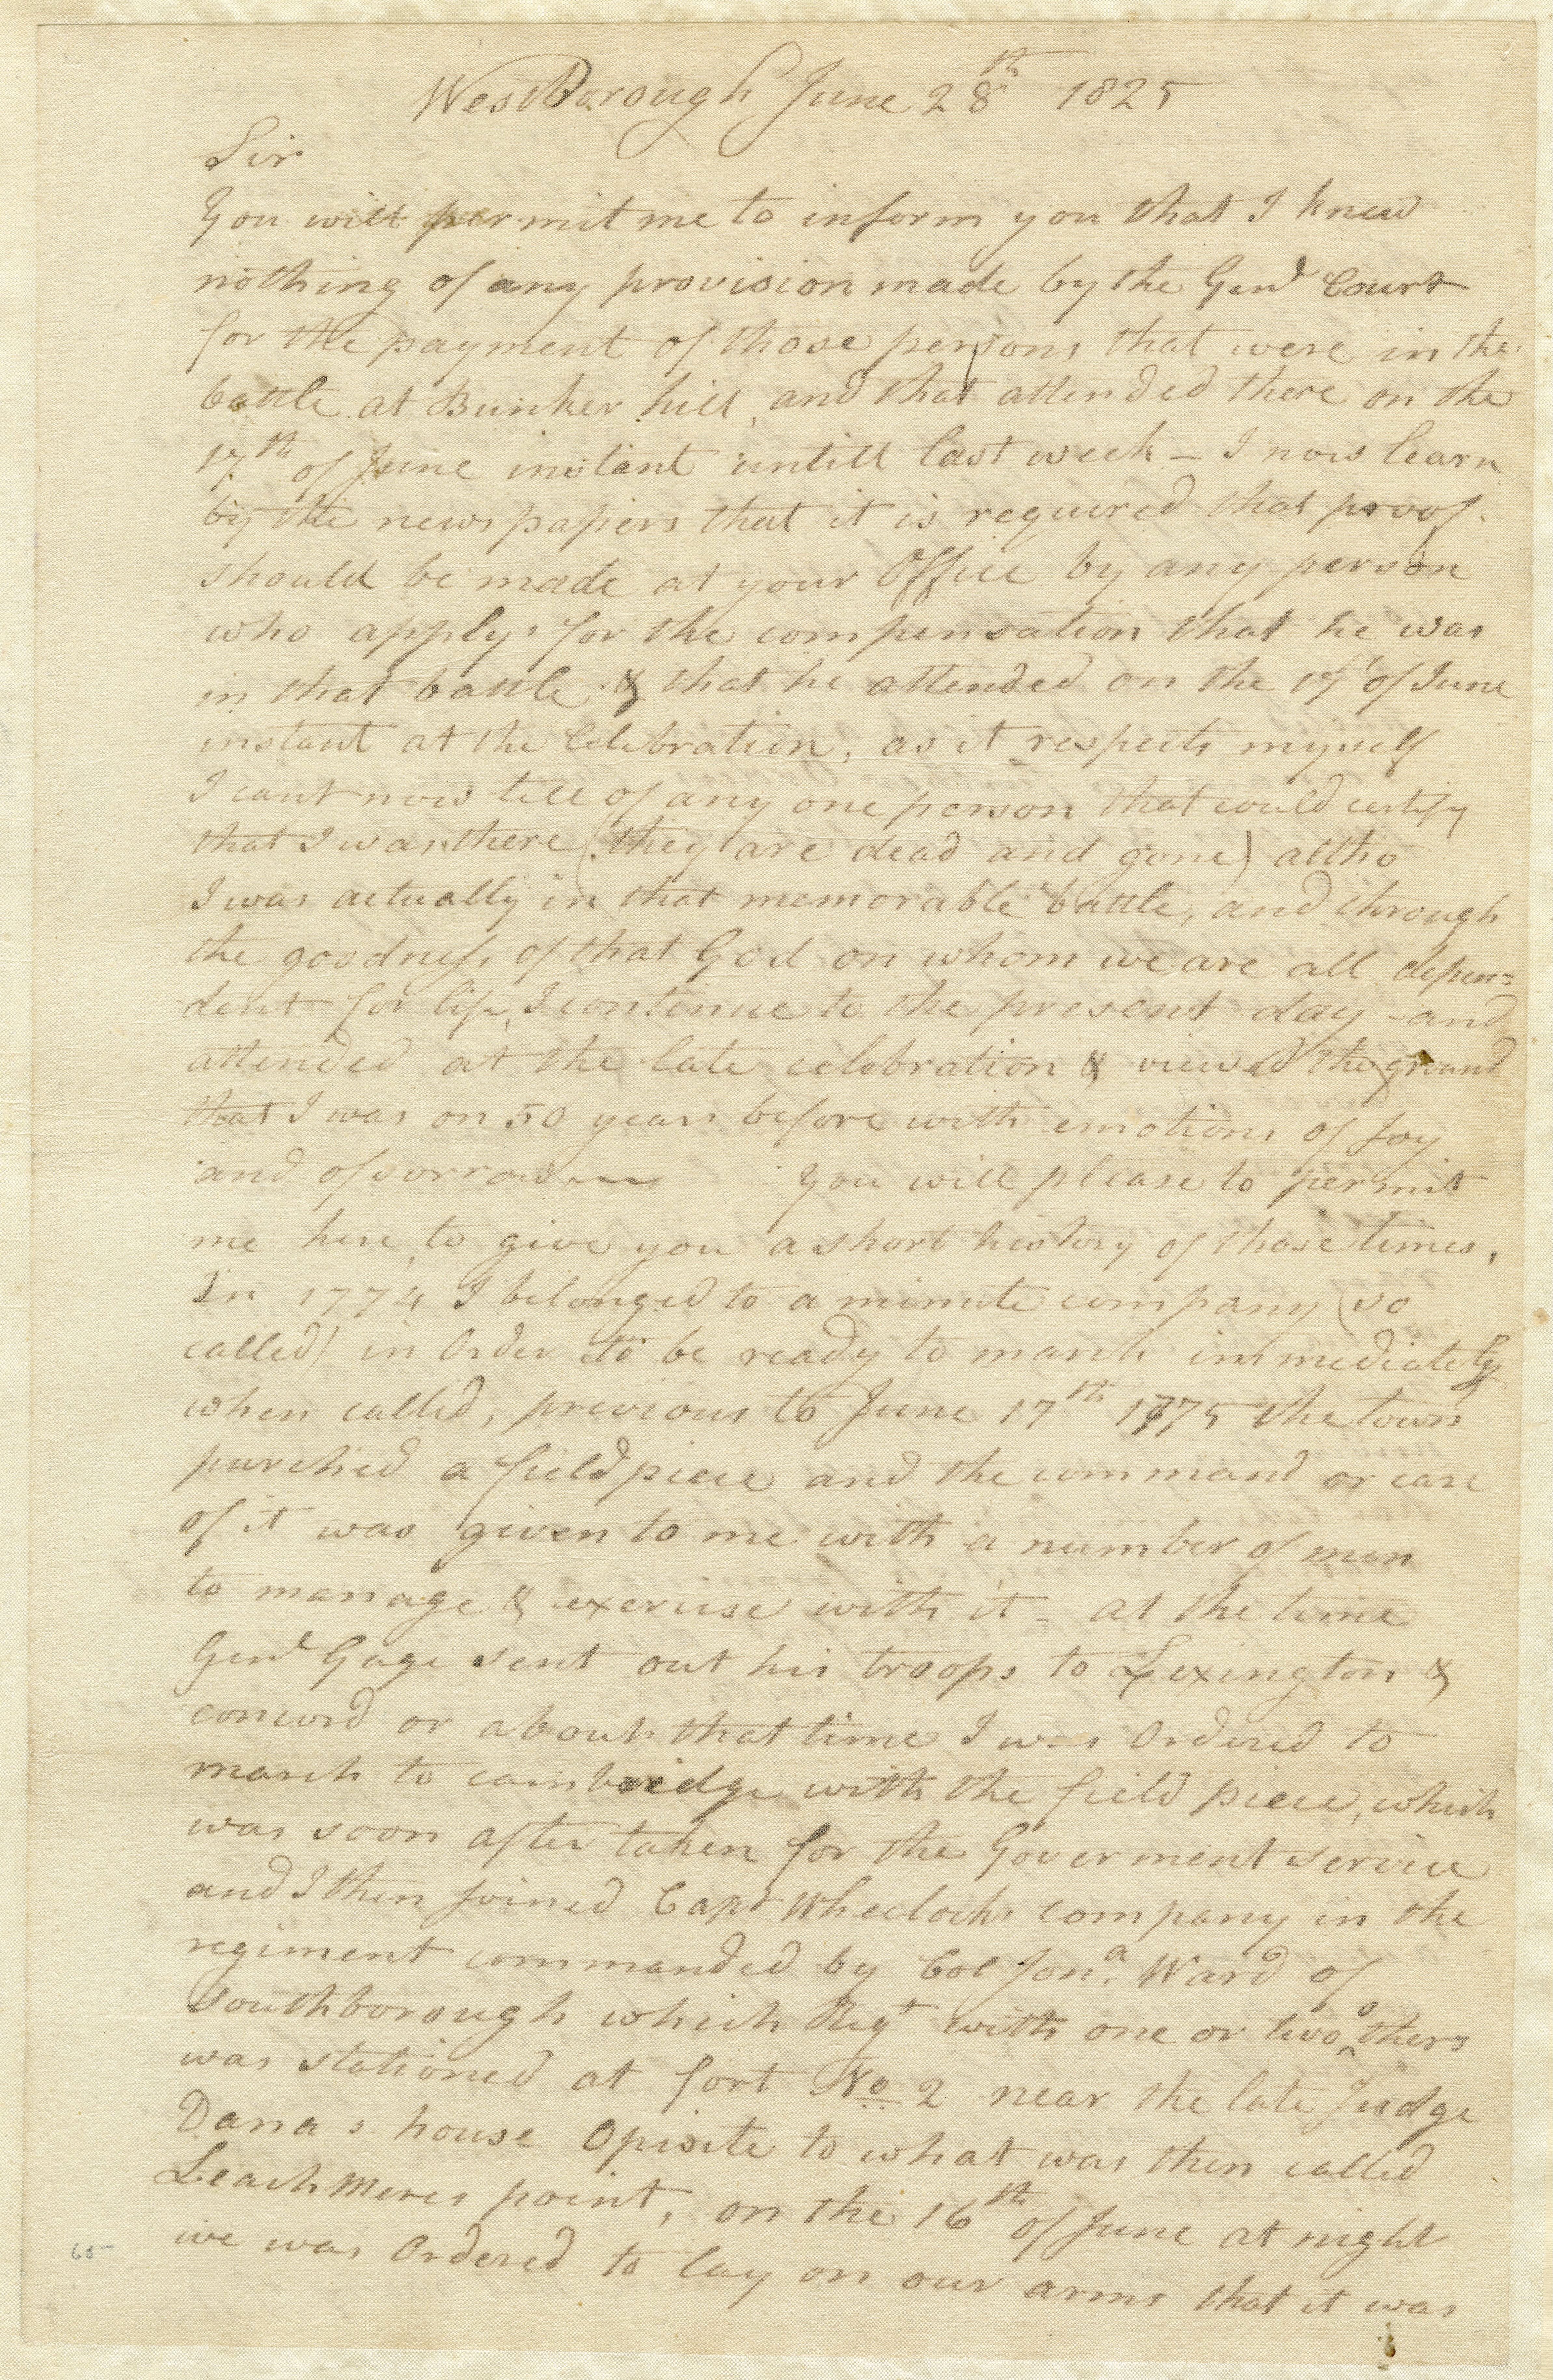 WestBorough June 28th 1825
Sir
You will permit me to inform you that I knew
nothing of any provision made by the Genl Court
for the payment of those persons that were in the
battle at Bunker hill, and that attended there on the
17th of June instant untill last week – I now learn
by the news papers that it is required that proof
should be made at your Office by any person
who applys for the compensation that he was
in that battle & that he attended on the 17th of June
instant at the Celebration, as it respects myself
I cant now tell of any one person that could certify
that I was there (they are dead and gone) altho
I was actually in that memorable battle, and through
the goodness of that God on whom we are all depen=
dent for life, I continue to the present day – and
attended at the late celebration & viewed the ground
that I was on 50 years before with emotions of Joy
and of sorrow You will please to permit
me here to give you a short history of those times,
In 1774 I belonged to a minute company (so
called) in Order to be ready to march immediately
when called, previous to June 17th 1775 the town
purched a field piece and the command or care
of it was given to me with a number of men
to manage & exercise with it – at the time
Genl Gage sent out his troops to Lexington &
concord or about that time I was Ordered to
march to cambridge with the field piece, which
was soon after taken for the Goverment service
and I then Joined Capt Wheelocks company in the
regiment commanded by Col Jona. Ward of
Southborough which Regt with one or two others
was stationed at fort No 2 near the late Judge
Danas house Opisite to what was then called
Leachmeres point, on the 16th of June at night
we was Ordered to lay on our arms that it was
65-